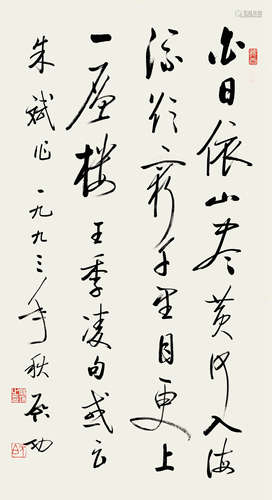 白日依山尽黄河入海
流欲穷千里目更上
一层楼 王季凌句或云
朱斌作 一九九三年秋 启功